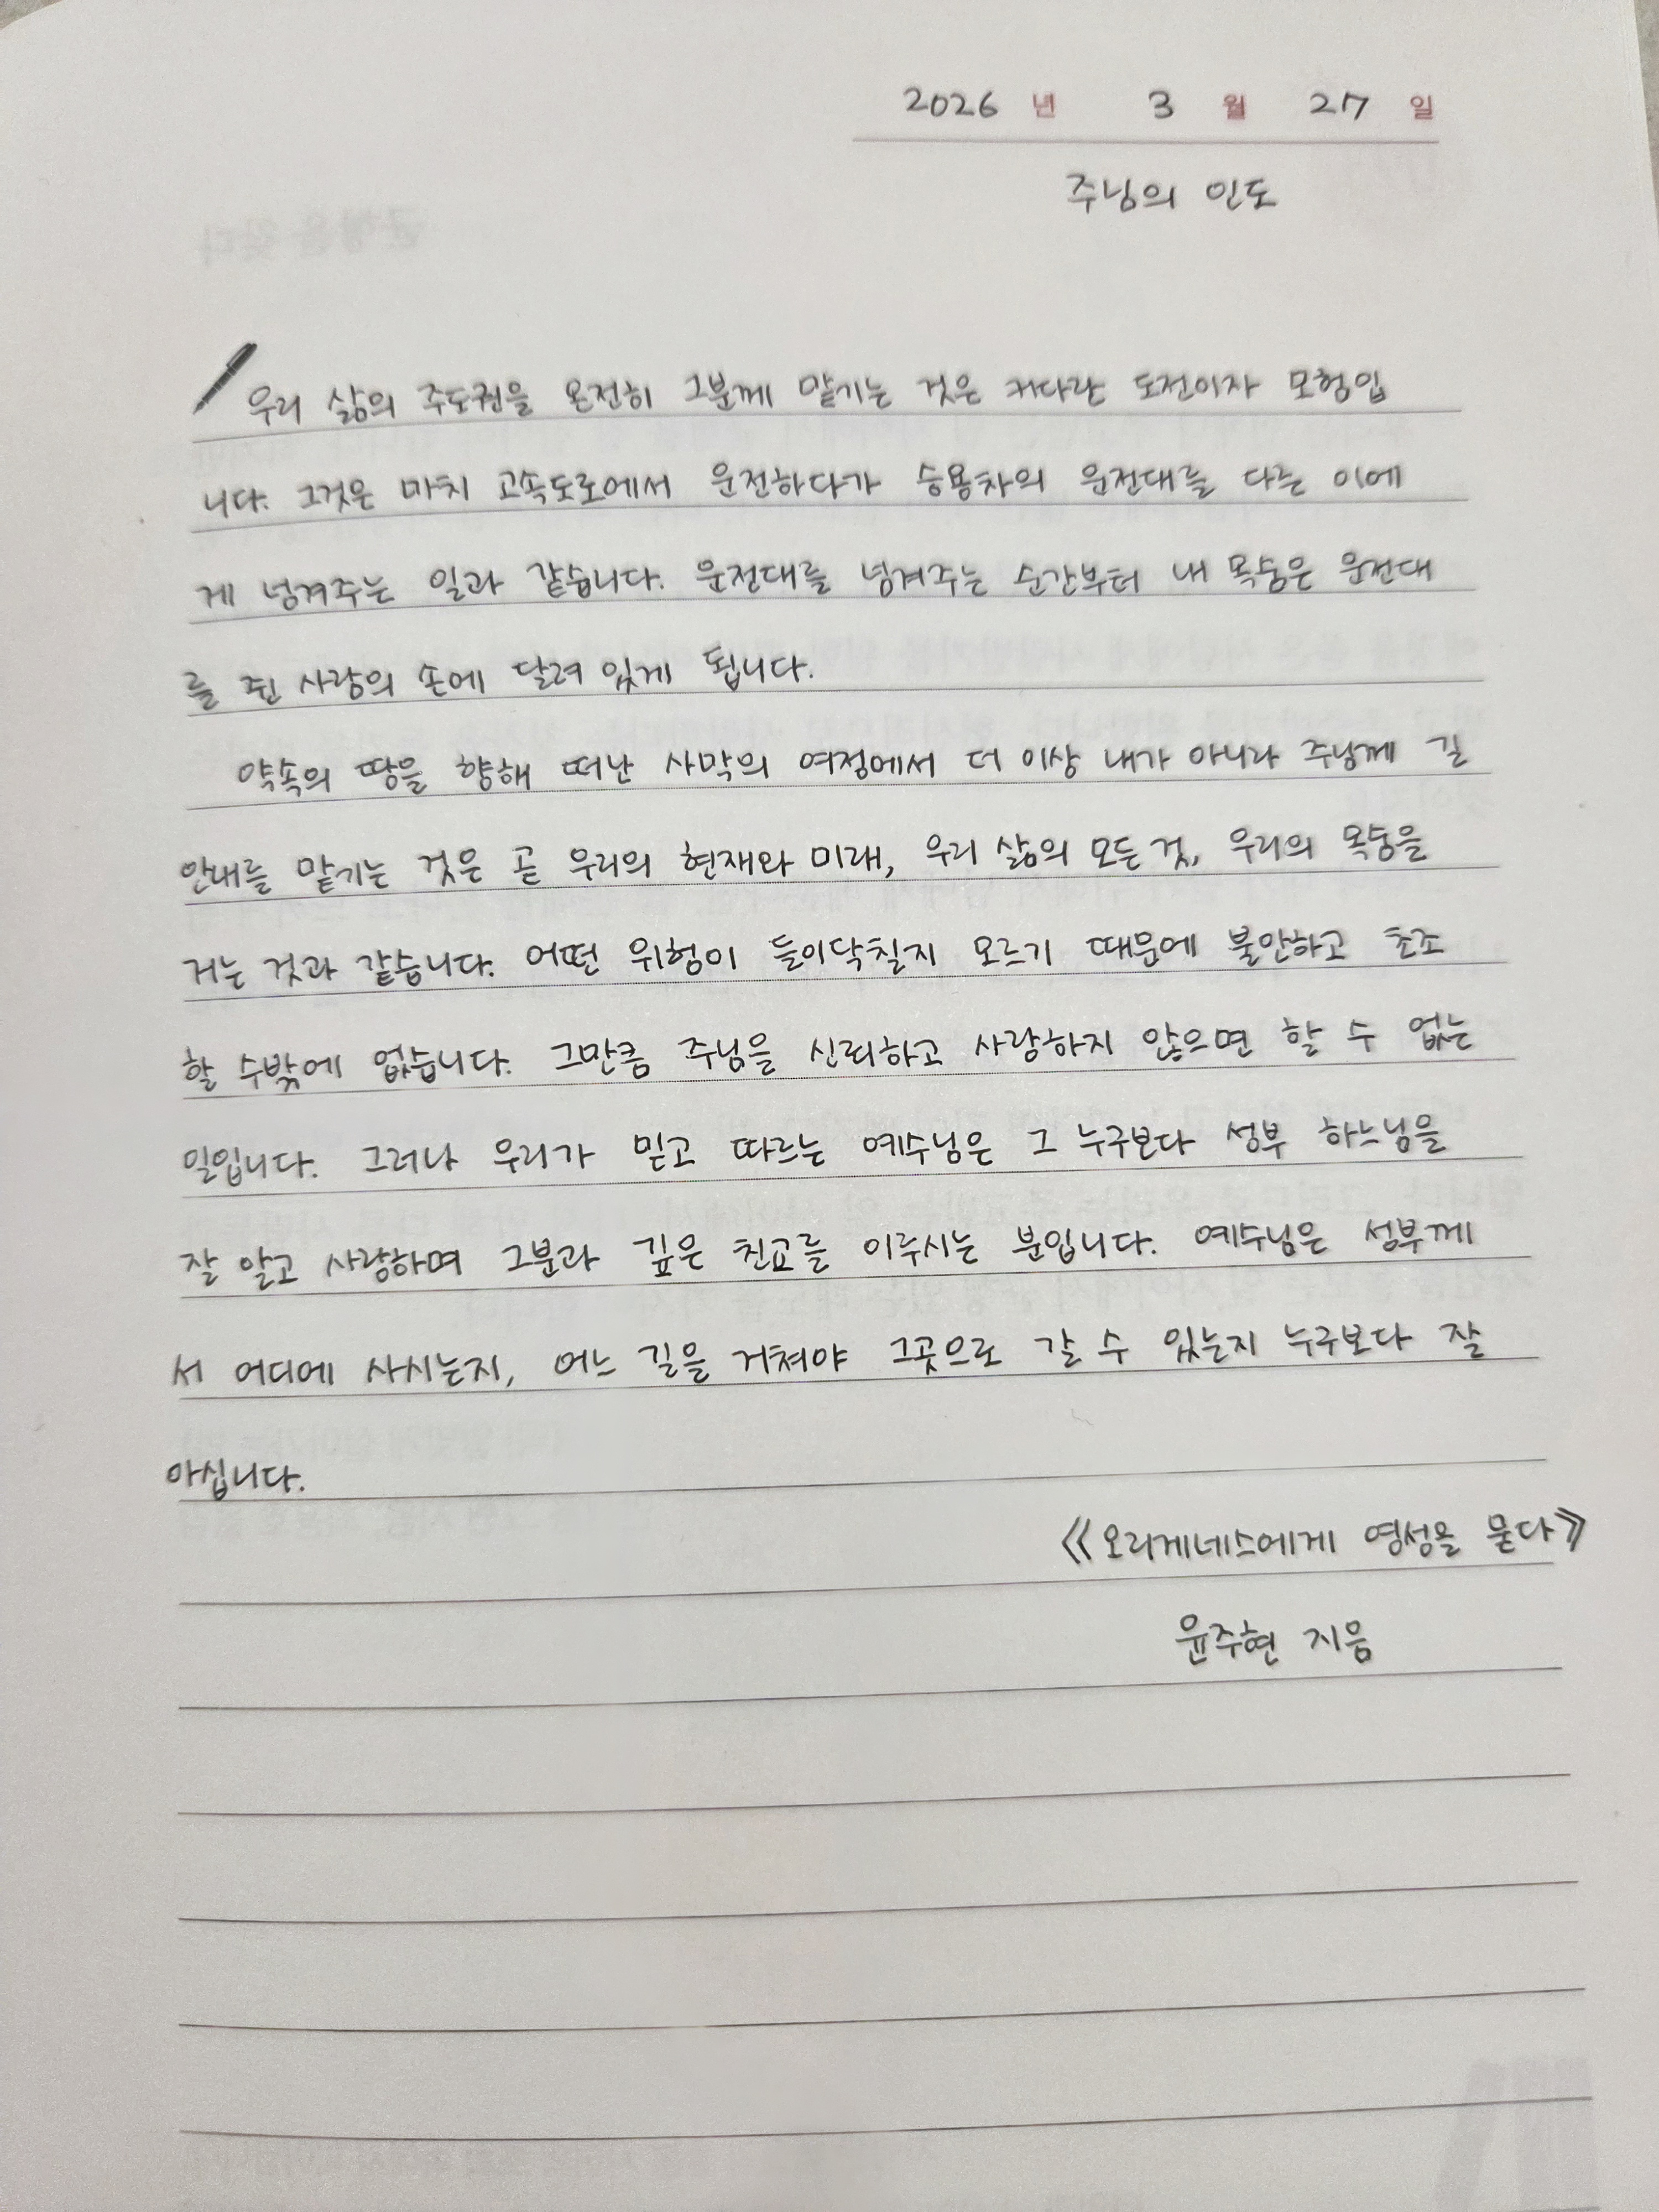 2026 년 3 월 27 일
주님의 인도
우리 삶의 주도권을 온전히 그분께 맡기는 것은 커다란 도전이자 모험입
니다. 그것은 마치 고속도로에서 운전하다가 승용차의 운전대를 다른 이에
게 넘겨주는 일과 같습니다. 운전대를 넘겨주는 순간부터 내 목숨은 운전대
를 쥔 사람의 손에 달려 있게 됩니다.
약속의 땅을 향해 떠난 사막의 여정에서 더 이상 내가 아니라 주님께 길
안내를 맡기는 것은 곧 우리의 현재와 미래, 우리 삶의 모든 것, 우리의 목숨을
거는 것과 같습니다. 어떤 위험이 들이닥칠지 모르기 때문에 불안하고 초조
할 수밖에 없습니다. 그만큼 주님을 신뢰하고 사랑하지 않으면 할 수 없는
일입니다. 그러나 우리가 믿고 따르는 예수님은 그 누구보다 성부 하느님을
잘 알고 사랑하며 그분과 깊은 친교를 이루시는 분입니다. 예수님은 성부께
서 어디에 사시는지, 어느 길을 거쳐야 그곳으로 갈 수 있는지 누구보다 잘
아십니다.
《오리게네스에게 영성을 묻다》
윤주현 지음